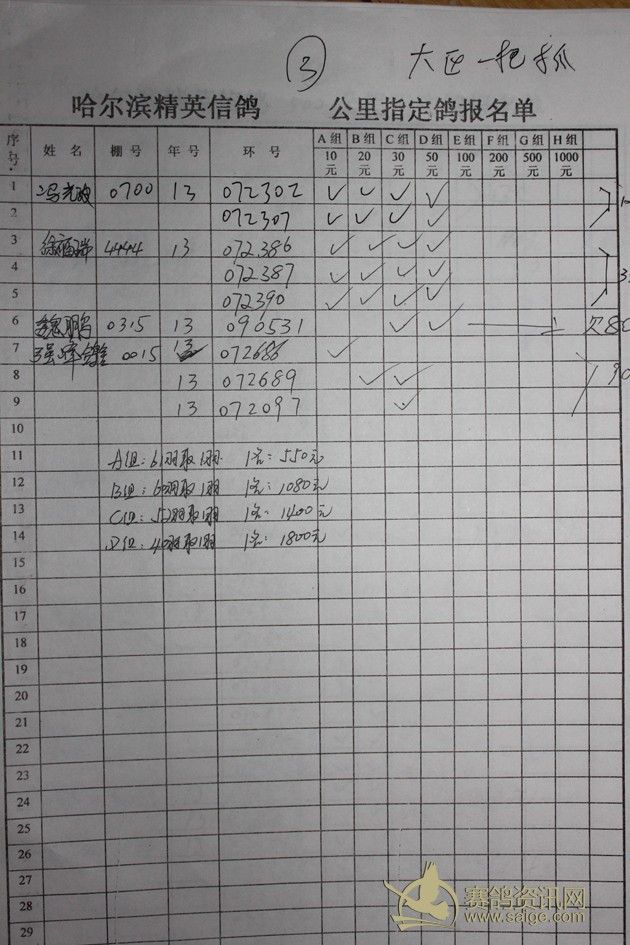 ③ 大正一把抓
哈尔滨精英信鸽 公里指定鸽报名单
序号 姓名 棚号 年号 环号 A组10元 B组20元 C组30元 D组50元 E组100元 F组200元 G组500元 H组1000元
1 0700 13 072302 ✓ ✓ ✓ ✓
2 072307 ✓ ✓ ✓ ✓
3 4444 13 072386 ✓ ✓ ✓ ✓
4 072387 ✓ ✓ ✓ ✓
5 072390 ✓ ✓ ✓ ✓
6 魏鹏 0315 13 090531 ✓ ✓ 欠80
7 0015 13 072686 ✓
8 13 072689 ✓ ✓
9 13 072097 ✓ 90
10
11 A组:61羽取1羽 1名:550元
12 B组:60羽取1羽 1名:1080元
13 C组:52羽取1羽 1名:1400元
14 D组:40羽取1羽 1名:1800元
15
16
17
18
19
20
21
22
23
24
25
26
27
28
29
赛鸽资讯网
www.saige.com